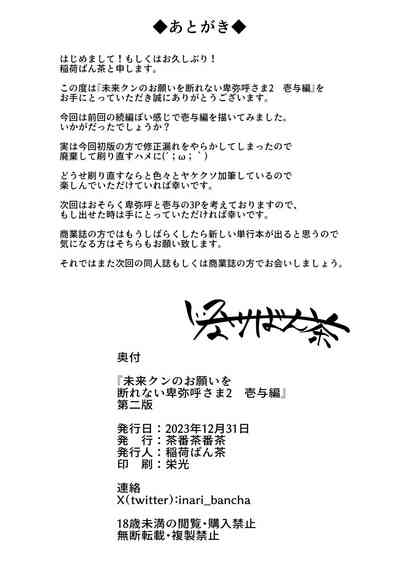 ◆あとがき◆
はじめまして！もしくはお久しぶり！
稲荷ばん茶と申します。
この度は『未来クンのお願いを断れない卑弥呼さま2　壱与編』を
お手にとっていただき誠にありがとうございます。
今回は前回の続編ぽい感じで壱与編を描いてみました。
いかがだったでしょうか？
実は今回初版の方で修正漏れをやらかしてしまったので
廃棄して刷り直すハメに(´；ω；｀)
どうせ刷り直すならと色々とヤケクソ加筆しているので
楽しんでいただけていれば幸いです。
次回はおそらく卑弥呼と壱与の3Pを考えておりますので、
もし出せた時は手にとっていただければ幸いです。
商業誌の方ではもうしばらくしたら新しい単行本が出ると思うので
気になる方はそちらもお願い致します。
それではまた次回の同人誌もしくは商業誌の方でお会いしましょう。
いなりばん茶
奥付
『未来クンのお願いを
断れない卑弥呼さま2　壱与編』
第二版
発行日：2023年12月31日
発　行：茶番茶番茶
発行人：稲荷ばん茶
印　刷：栄光
連絡
X(twitter):inari_bancha
18歳未満の閲覧・購入禁止
無断転載・複製禁止